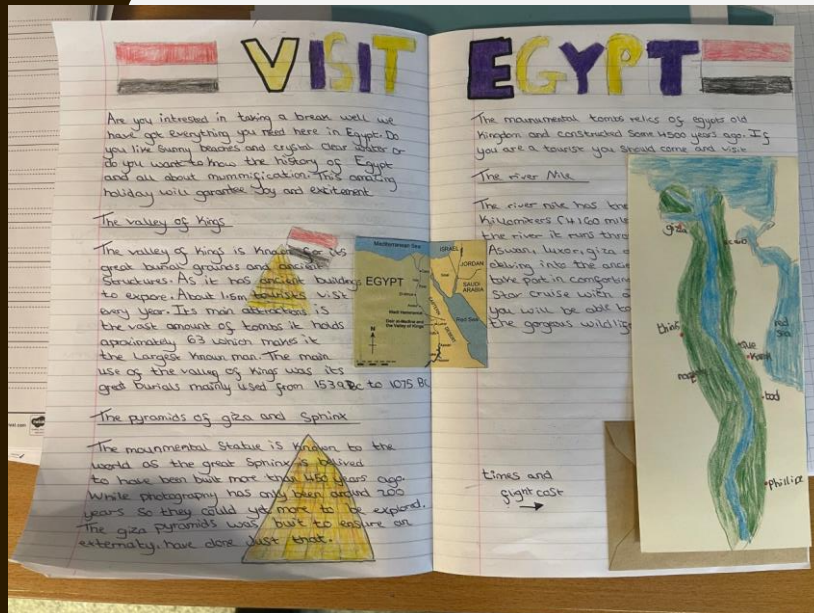 VISIT EGYPT
Are you intrested in taking a break well we
have got everything you need here in Egypt. Do
you like sunny beaches and crystal clear water or
do you want to know the history of Egypt
and all about mummification. This amazing
holiday will garantee Joy and excitement
The valley of Kings
The valley of kings is Known for its
great burial grounds and ancient
structures. As it has ancient buildings
to expore. About 1.5m tourists visit
every year. Its main attractions is
the vast amount of tombs it holds
aproximately 63 which makes it
the largest known man. The main
use of the valley of kings was its
great burials mainly used from 1539 BC to 1075 BC
The pyramids of giza and Sphinx
The mounmental Statue is known to the
world as the great Sphinx is belived
to have been built more than 450 years ago.
While photography has only been around 200
years so they could yet more to be explord.
The giza pyramids was built to ensure an
externaty, have done Just that.
Mediterranean Sea
ISRAEL
JORDAN
EGYPT
SAUDI
ARABIA
Red Sea
N
The mounumental tombs relics of egypts old
Kingdom and constructed some 4500 years ago. If
you are a tourist you should come and visit
The river Nile
The river nile has the
Kilomiters (4160 mile
the river it runs thro
Aswan, luxor, giza a
delving into the ancie
take part in comforting
Star cruise with a
you will be able to
the gorgeous wildlife
times and
flight cost
giza
thinis
red
sea
phillipe